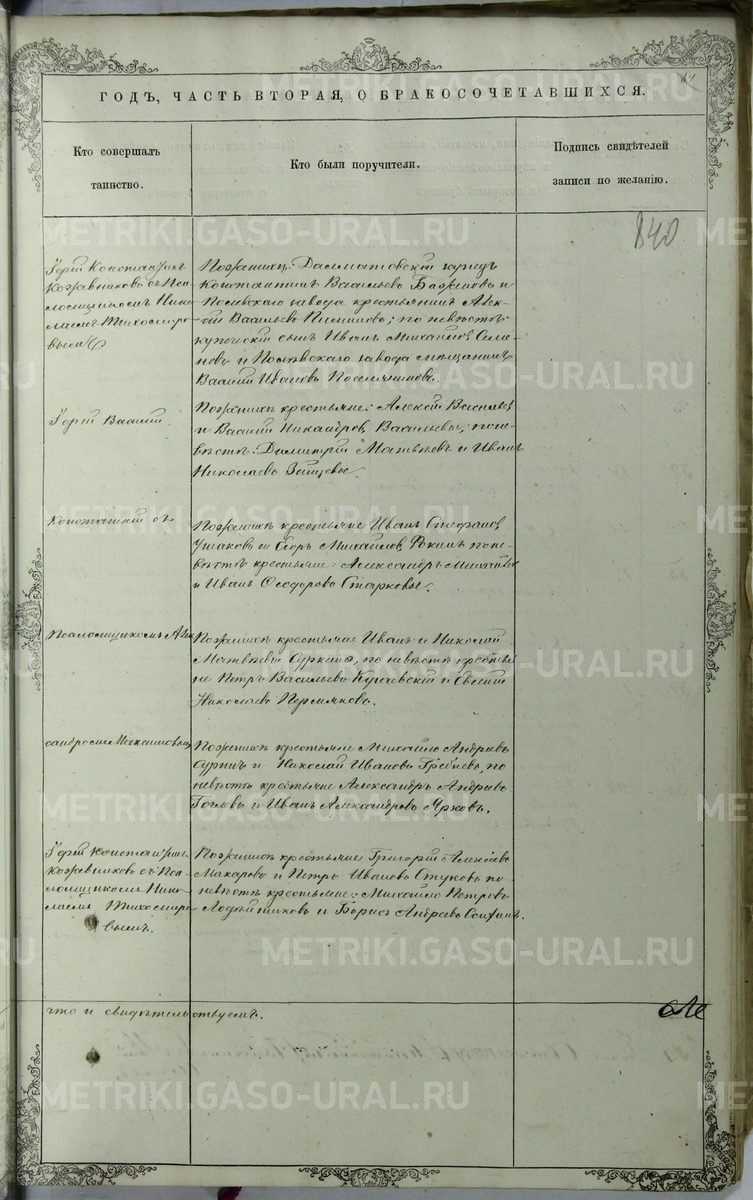 64
ГОДЪ, ЧАСТЬ ВТОРАЯ, О БРАКОСОЧЕТАВШИХСЯ.
Кто совершалъ
таинство.
Кто были поручители.
Подпись свидѣтелей
записи по желанію.
840
Іерей Константинъ
Кожевниковъ съ Пса-
ломщикомъ Нико-
лаемъ Тихоміро-
вымъ
По женихѣ: Далматовскій купецъ
Константинъ Васильевъ Баженовъ и
завода крестьянинъ Алек-
сѣй Васильевъ по невѣстѣ:
купеческій сынъ Иванъ Михаиловъ
и завода мѣщанинъ
Василій Ивановъ
Іерей Василій
По женихѣ крестьяне: Алексѣй Васильевъ
и Василій Никандровъ Васильевы; по не-
вѣстѣ: Димитрій Матвѣевъ и Иванъ
Николаевъ Зайцевы.
Конюшкій съ
По женихѣ крестьяне Иванъ Стефановъ
Ушаковъ и Егоръ Михаиловъ Фокинъ по не-
вѣстѣ крестьяне: Александръ Михаиловъ
и Иванъ Ѳеодоровъ Старковы.
Псаломщикомъ Алек
По женихѣ крестьяне Иванъ и Николай
Матвѣевы по невѣстѣ крестья
не Петръ Васильевъ и Евгеній
Николаевъ Пермяковъ.
сандромъ Максимовымъ
По женихѣ крестьяне Михаило Андреевъ
и Николай Ивановъ Гребневъ, по
невѣстѣ крестьяне Александръ Андреевъ
и Иванъ Александровъ Ярковъ.
Іерей Константинъ
Кожевниковъ съ Пса-
ломщикомъ Нико-
лаемъ Тихоміро-
вымъ.
По женихѣ крестьяне Григорій Алексѣевъ
Макаровъ и Петръ Ивановъ Стуковъ по
невѣстѣ крестьяне: Михаило Петровъ
Лодейщиковъ и Борисъ Андреевъ
что и свидѣтельствуемъ.
METRIKI.GASO-URAL.RU